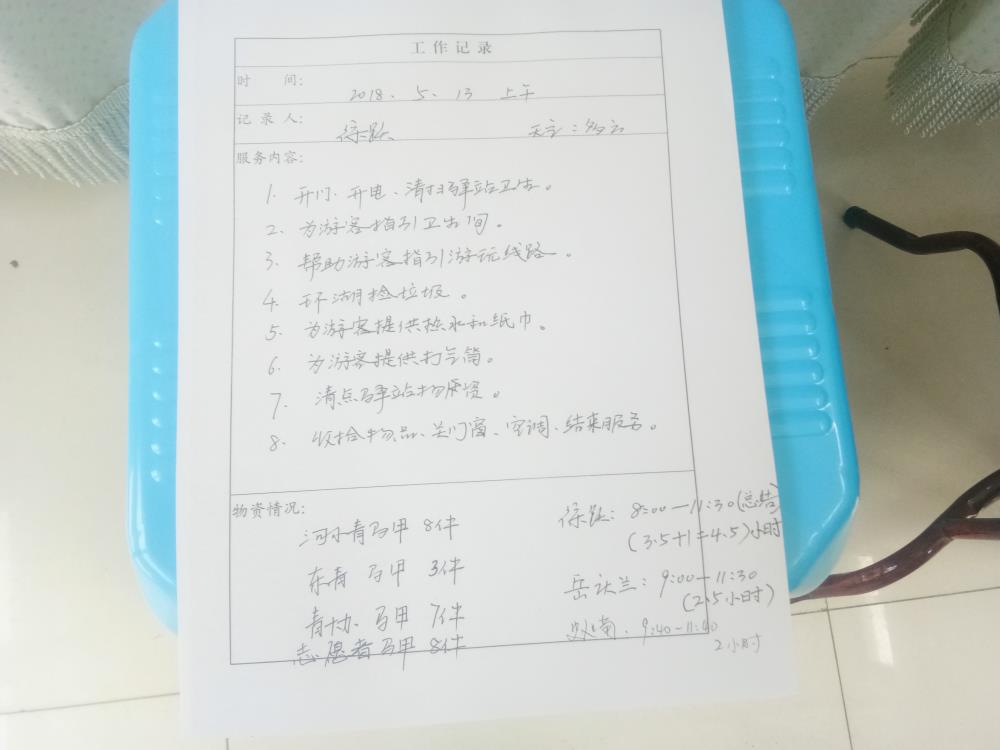 工作记录
时 间: 2018、5、13 上午
记录人: 徐跃 天气:多云
服务内容:
1. 开门、开电、清扫驿站卫生。
2. 为游客指引卫生间。
3. 帮助游客指引游玩线路。
4. 环湖捡垃圾。
5. 为游客提供热水和纸巾。
6. 为游客提供打气筒。
7. 清点驿站物资。
8. 收拾物品、关门窗、空调、结束服务。
物资情况:
河小青马甲 8件
东青 马甲 3件
青协 马甲 7件
志愿者马甲 8件
徐跃: 8:00—11:30(总结)
(3.5+1=4.5)小时
岳兰: 9:00—11:30
(2.5小时)
9:40-11:40
2小时